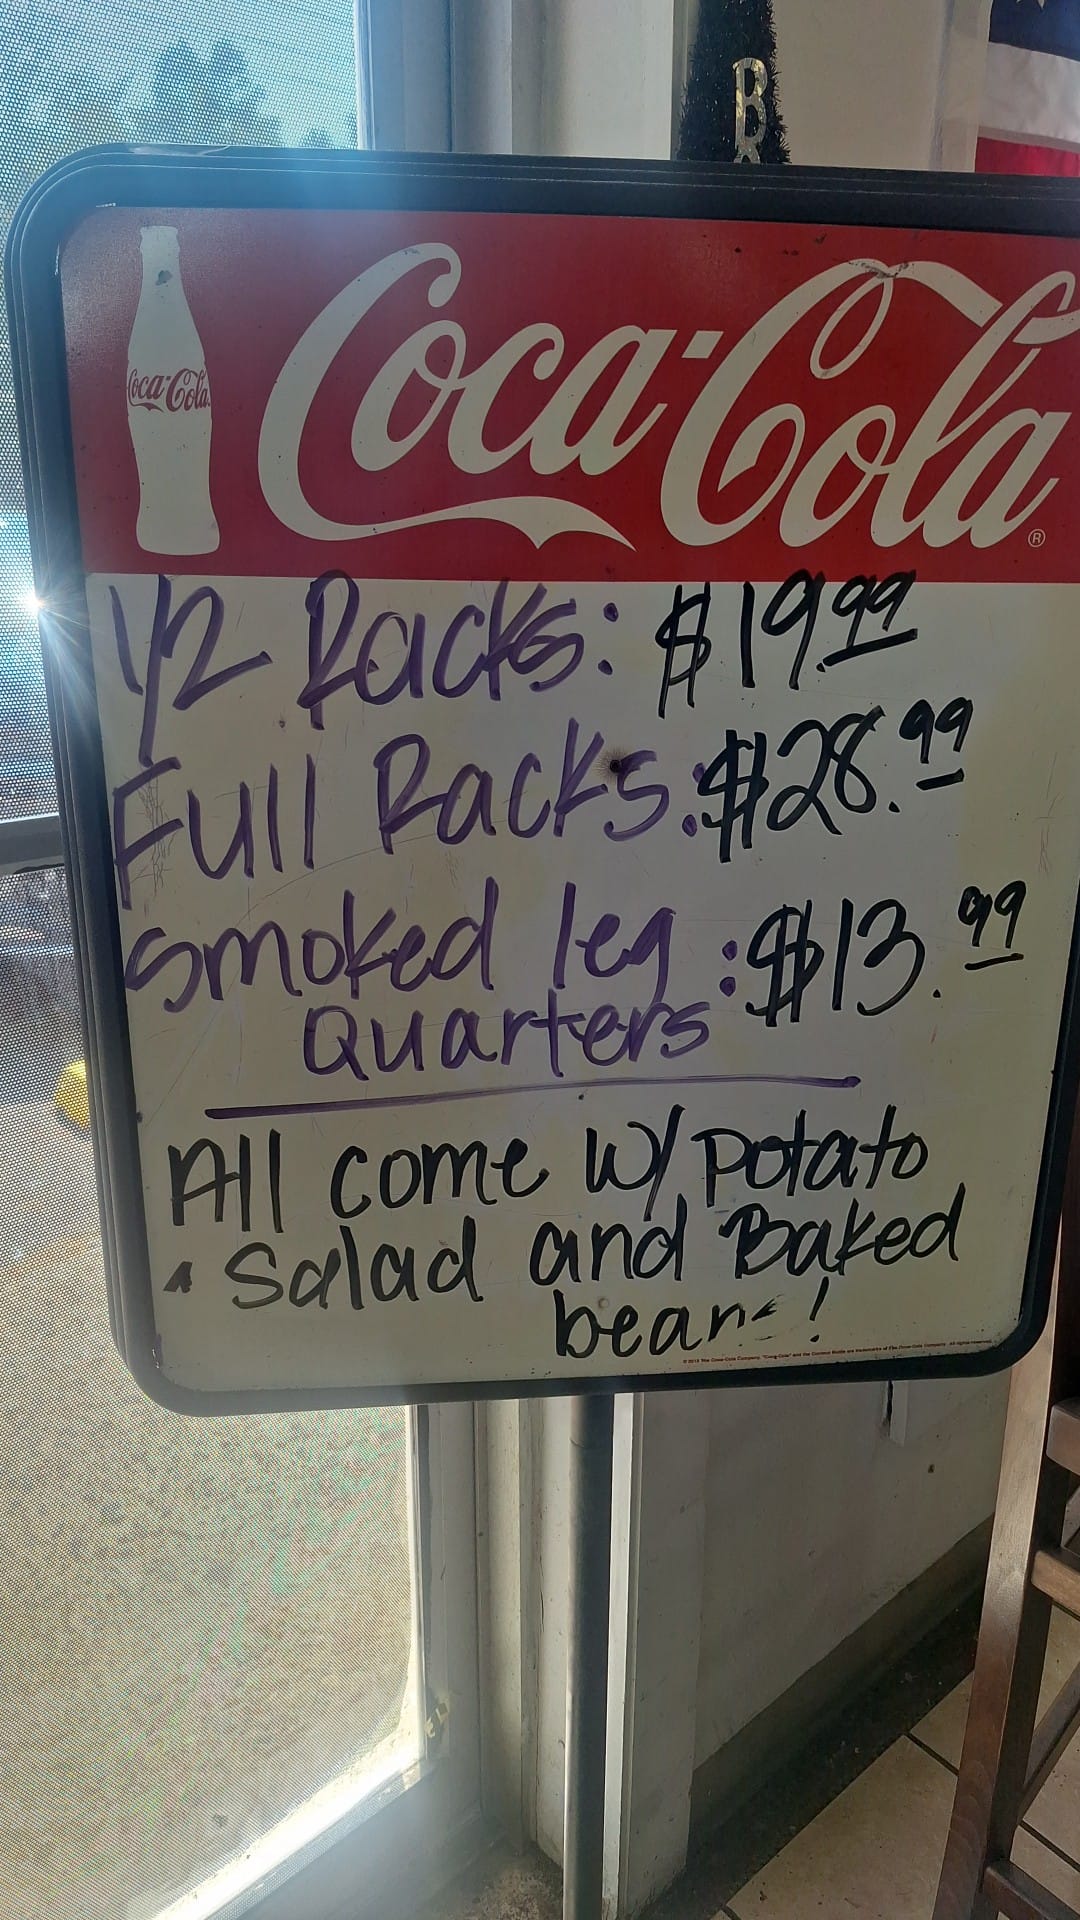 B
Coca-Cola
Coca-Cola®
1/2 Racks: $19.99
Full Racks: $28.99
Smoked leg :$13.99
Quarters
All come w/ Potato
Salad and Baked
beans!